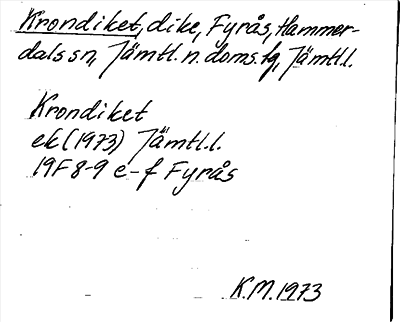 Krondiket, dike, Fyrås, Hammer-
dals sn, Jämtl. n. doms. tg, Jämtl.
Krondiket
ek (1973) Jämtl.l.
19F 8-9 e-f Fyrås
K.M. 1973